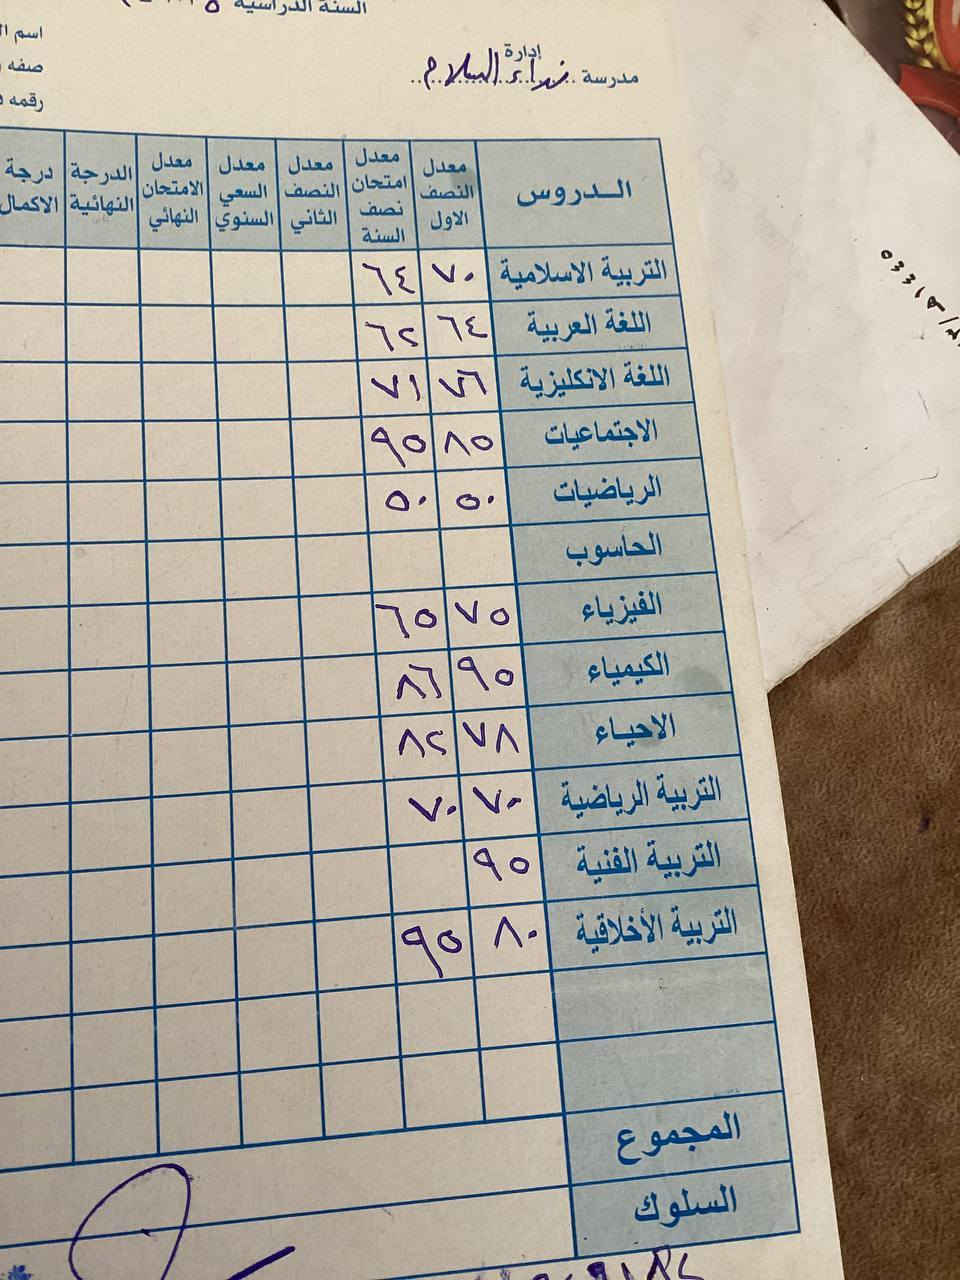 السنة الدراسية
اسم
إدارة
مدرسة نداء السلام
صفه
رقمه
الدروس
معدل النصف الاول
معدل امتحان نصف السنة
معدل النصف الثاني
معدل السعي السنوي
معدل الامتحان النهائي
الدرجة النهائية
درجة الاكمال
التربية الاسلامية ٧٠ ٦٤
اللغة العربية ٦٤ ٦٢
اللغة الانكليزية ٧٦ ٧١
الاجتماعيات ٨٥ ٩٥
الرياضيات ٥٠ ٥٠
الحاسوب
الفيزياء ٧٥ ٦٥
الكيمياء ٩٥ ٨٦
الاحياء ٧٨ ٨٢
التربية الرياضية ٧٠ ٧٠
التربية الفنية ٩٥
التربية الأخلاقية ٨٠ ٩٥
المجموع
السلوك